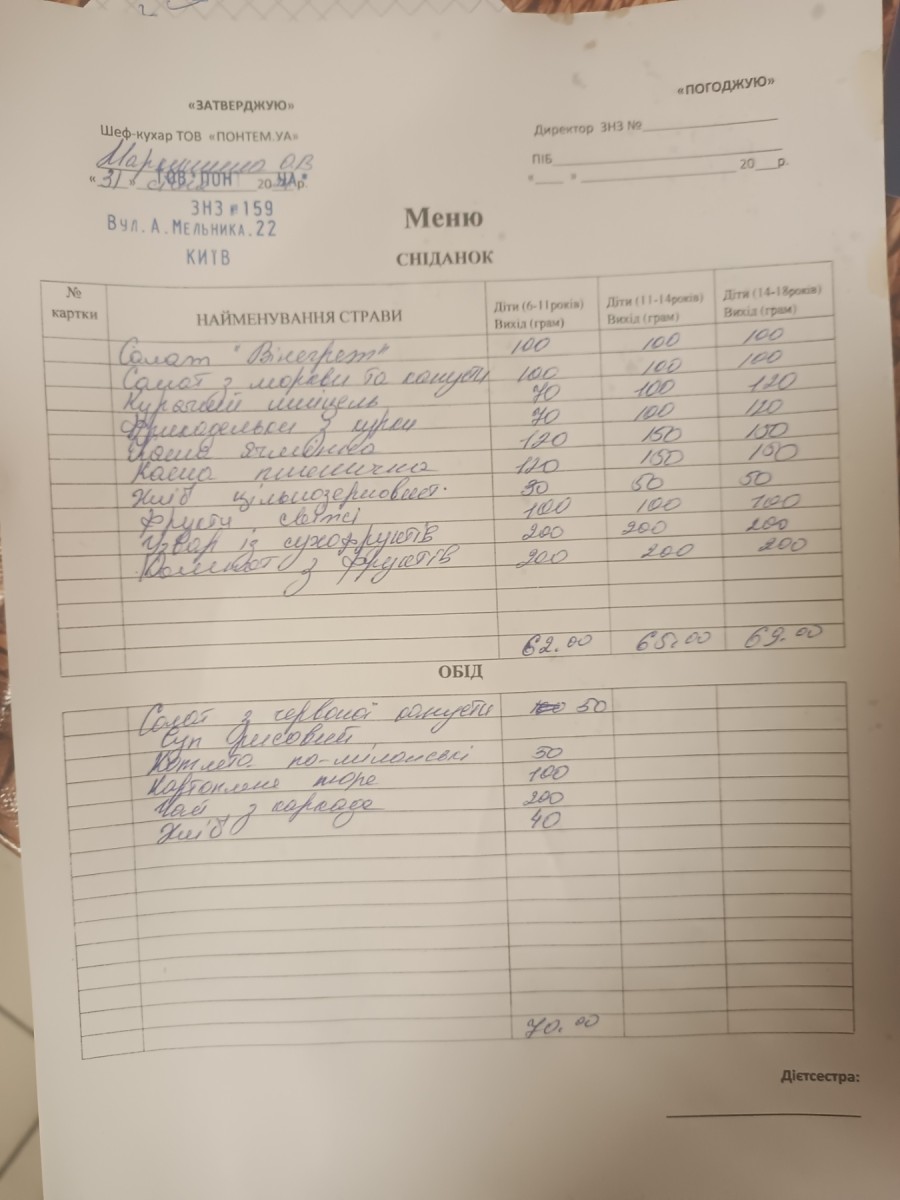 «ЗАТВЕРДЖУЮ»
«ПОГОДЖУЮ»
Шеф-кухар ТОВ «ПОНТЕМ.УА»
Директор ЗНЗ №
ПІБ
« » 20 р.
« 31 » 20 р.
ТОВ"ПОН УА"
ЗНЗ №159
Вул. А. Мельника.22
КИЇВ
Меню
СНІДАНОК
№ картки НАЙМЕНУВАННЯ СТРАВИ Діти (6-11років) Вихід (грам) Діти (11-14років) Вихід (грам) Діти (14-18років) Вихід (грам)
Салат "Вінегрет" 100 100 100
Салат з моркви та капусти 100 100 100
Курячий шніцель 70 100 120
Фрикадельки з курки 70 100 120
Каша ячмінна 120 150 150
Каша пшенична 120 150 150
Хліб цільнозерновий 30 50 50
Фрукти свіжі 100 100 100
Узвар із сухофруктів 200 200 200
Компот з фруктів 200 200 200
62.00 65.00 69.00
ОБІД
Салат з червоної капусти 50
Суп рисовий
Котлета по-міланські 50
Картопляне пюре 100
Чай з каркаде 200
Хліб 40
70.00
Дієтсестра: